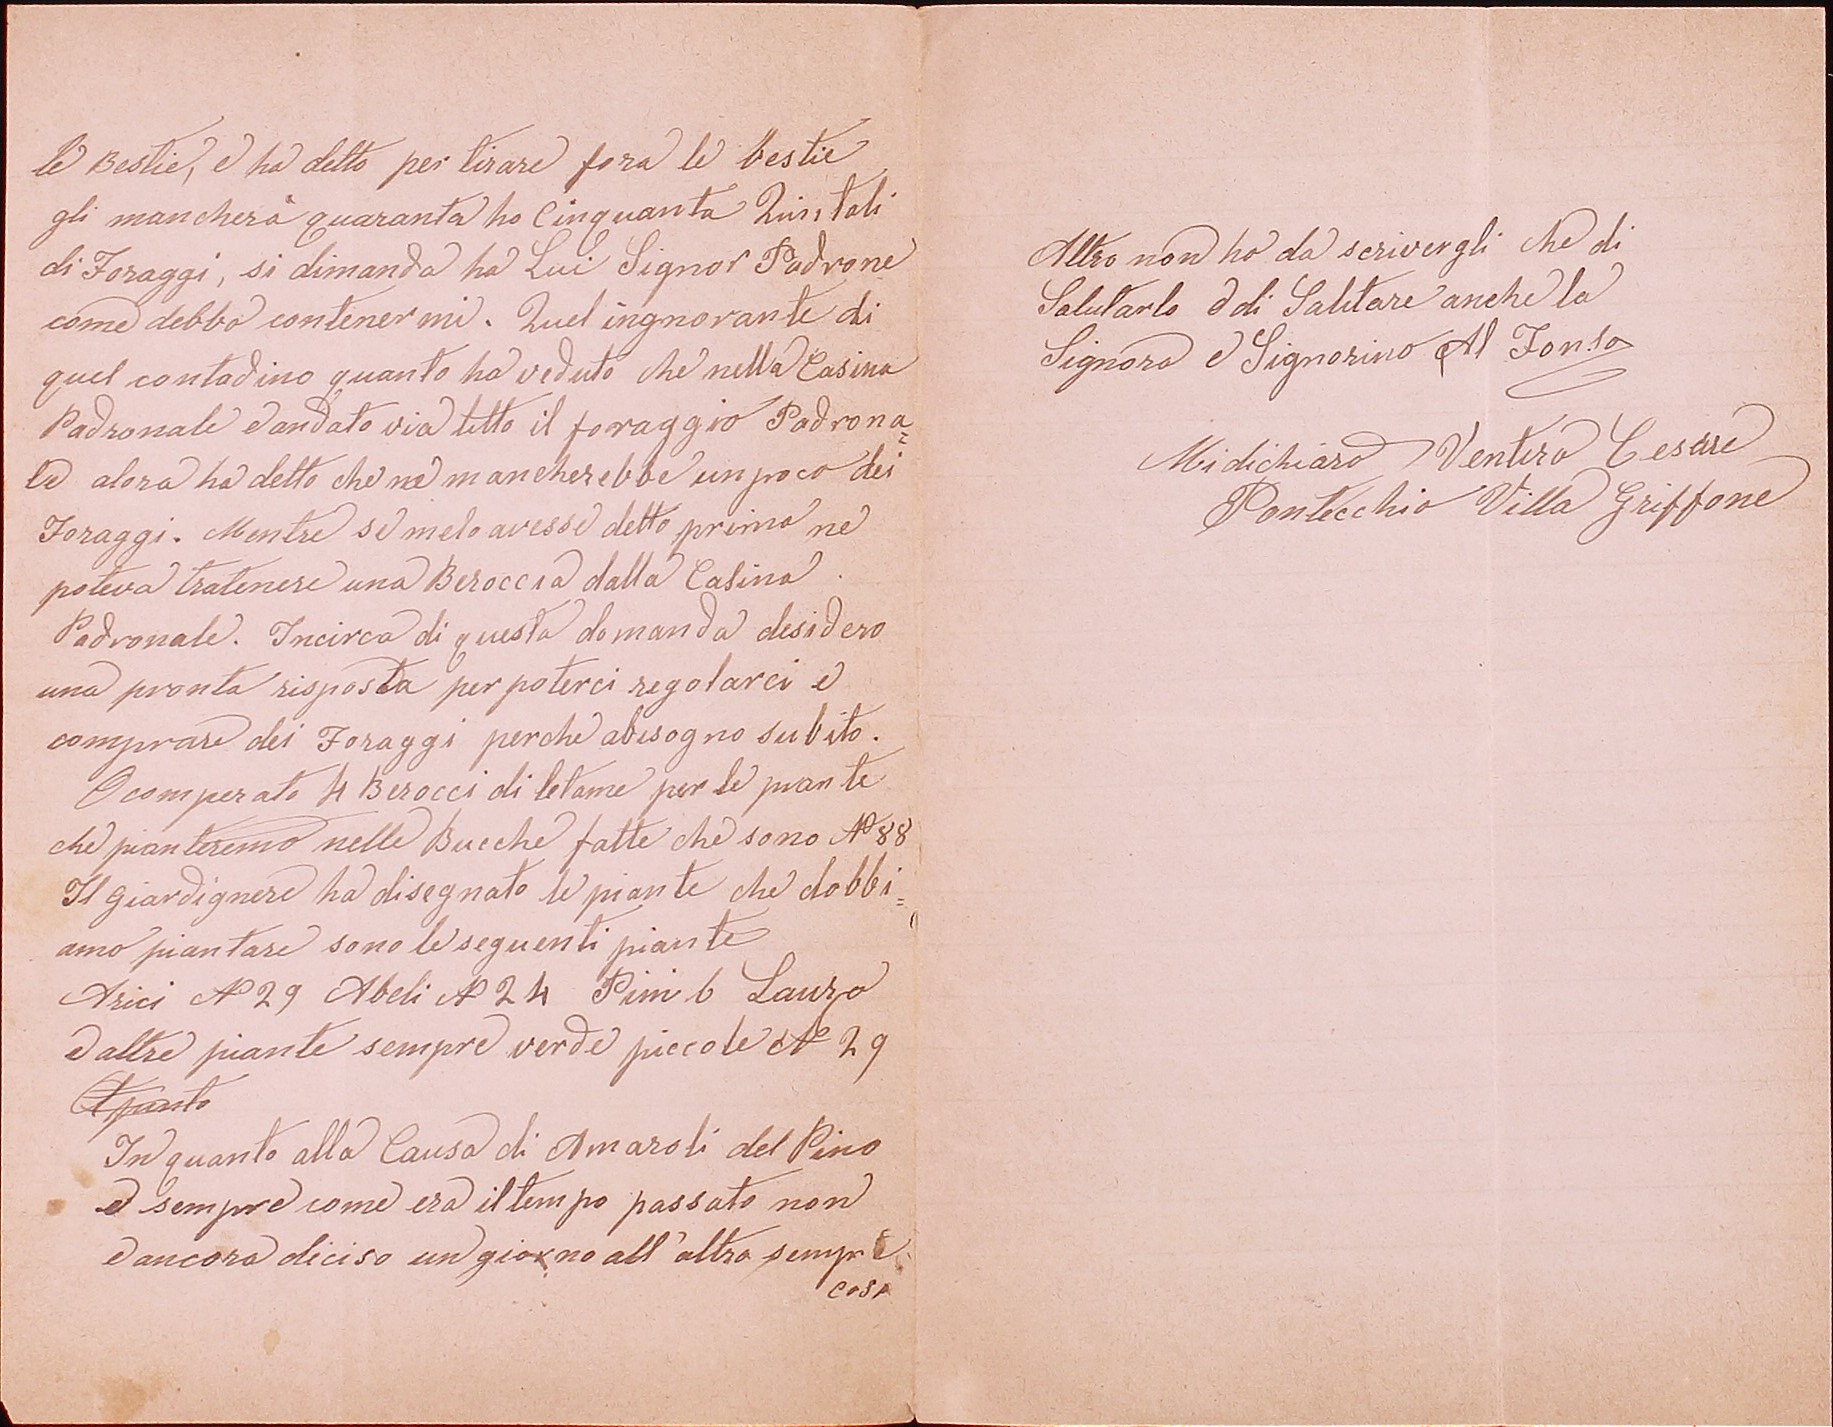 le Bestie, e ha detto per tirare fora le bestie
gli mancherà quaranta ho Cinquanta Quintali
di Foraggi, si dimanda ha Lui Signor Padrone
come debbo contenermi. Quel ingnorante di
quel contadino quanto ha veduto che nella Casina
Padronale e andato via tutto il foraggio Padrona=
le alora ha detto che ne mancherebbe un poco dei
Foraggi. Mentre se melo avesse detto prima ne
poteva tratenere una Beroccia dalla Casina
Padronale. Incirca di questa domanda desidero
una pronta risposta per poterci regolarci e
comprare dei Foraggi perche abisogno subito.
O comperato 4 Berocci di letame per le piante
che pianteremo nelle Bucche fatte che sono No 88
Il giardignere ha disegnato le piante che dobbi=
amo piantare sono le seguenti piante
Arici No 29 Abeli No 24 Pini 6 Lauro
e altre piante sempre verde piccole No 29
In quanto alla Causa di Amaroli del Pino
e sempre come era il tempo passato non
e ancora diciso un giorno all'altro sempre
cosi
Altro non ho da scrivergli che di
Salutarlo e di Salutare anche la
Signora e Signorino Al Fonso
Midichiaro Ventura Cesare
Pontecchio Villa Griffone